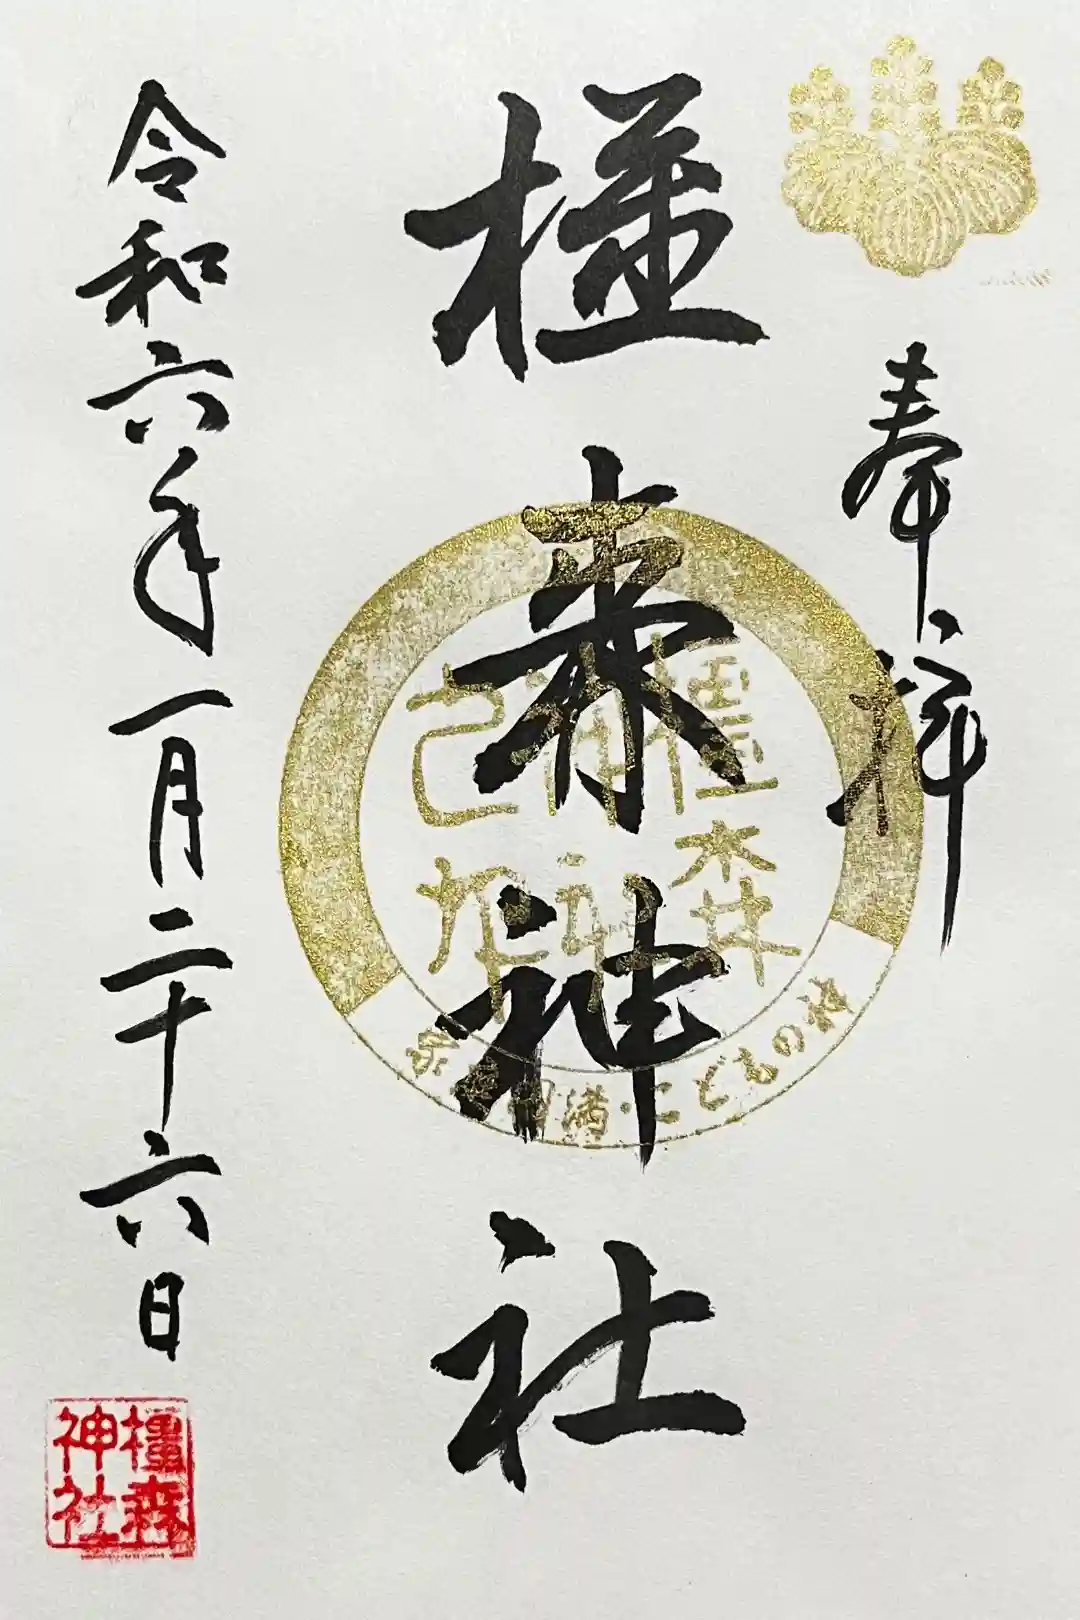 奉拝
橿森神社
令和六年一月二十六日
橿森
神社
家庭円満・こどもの神
橿森
神社